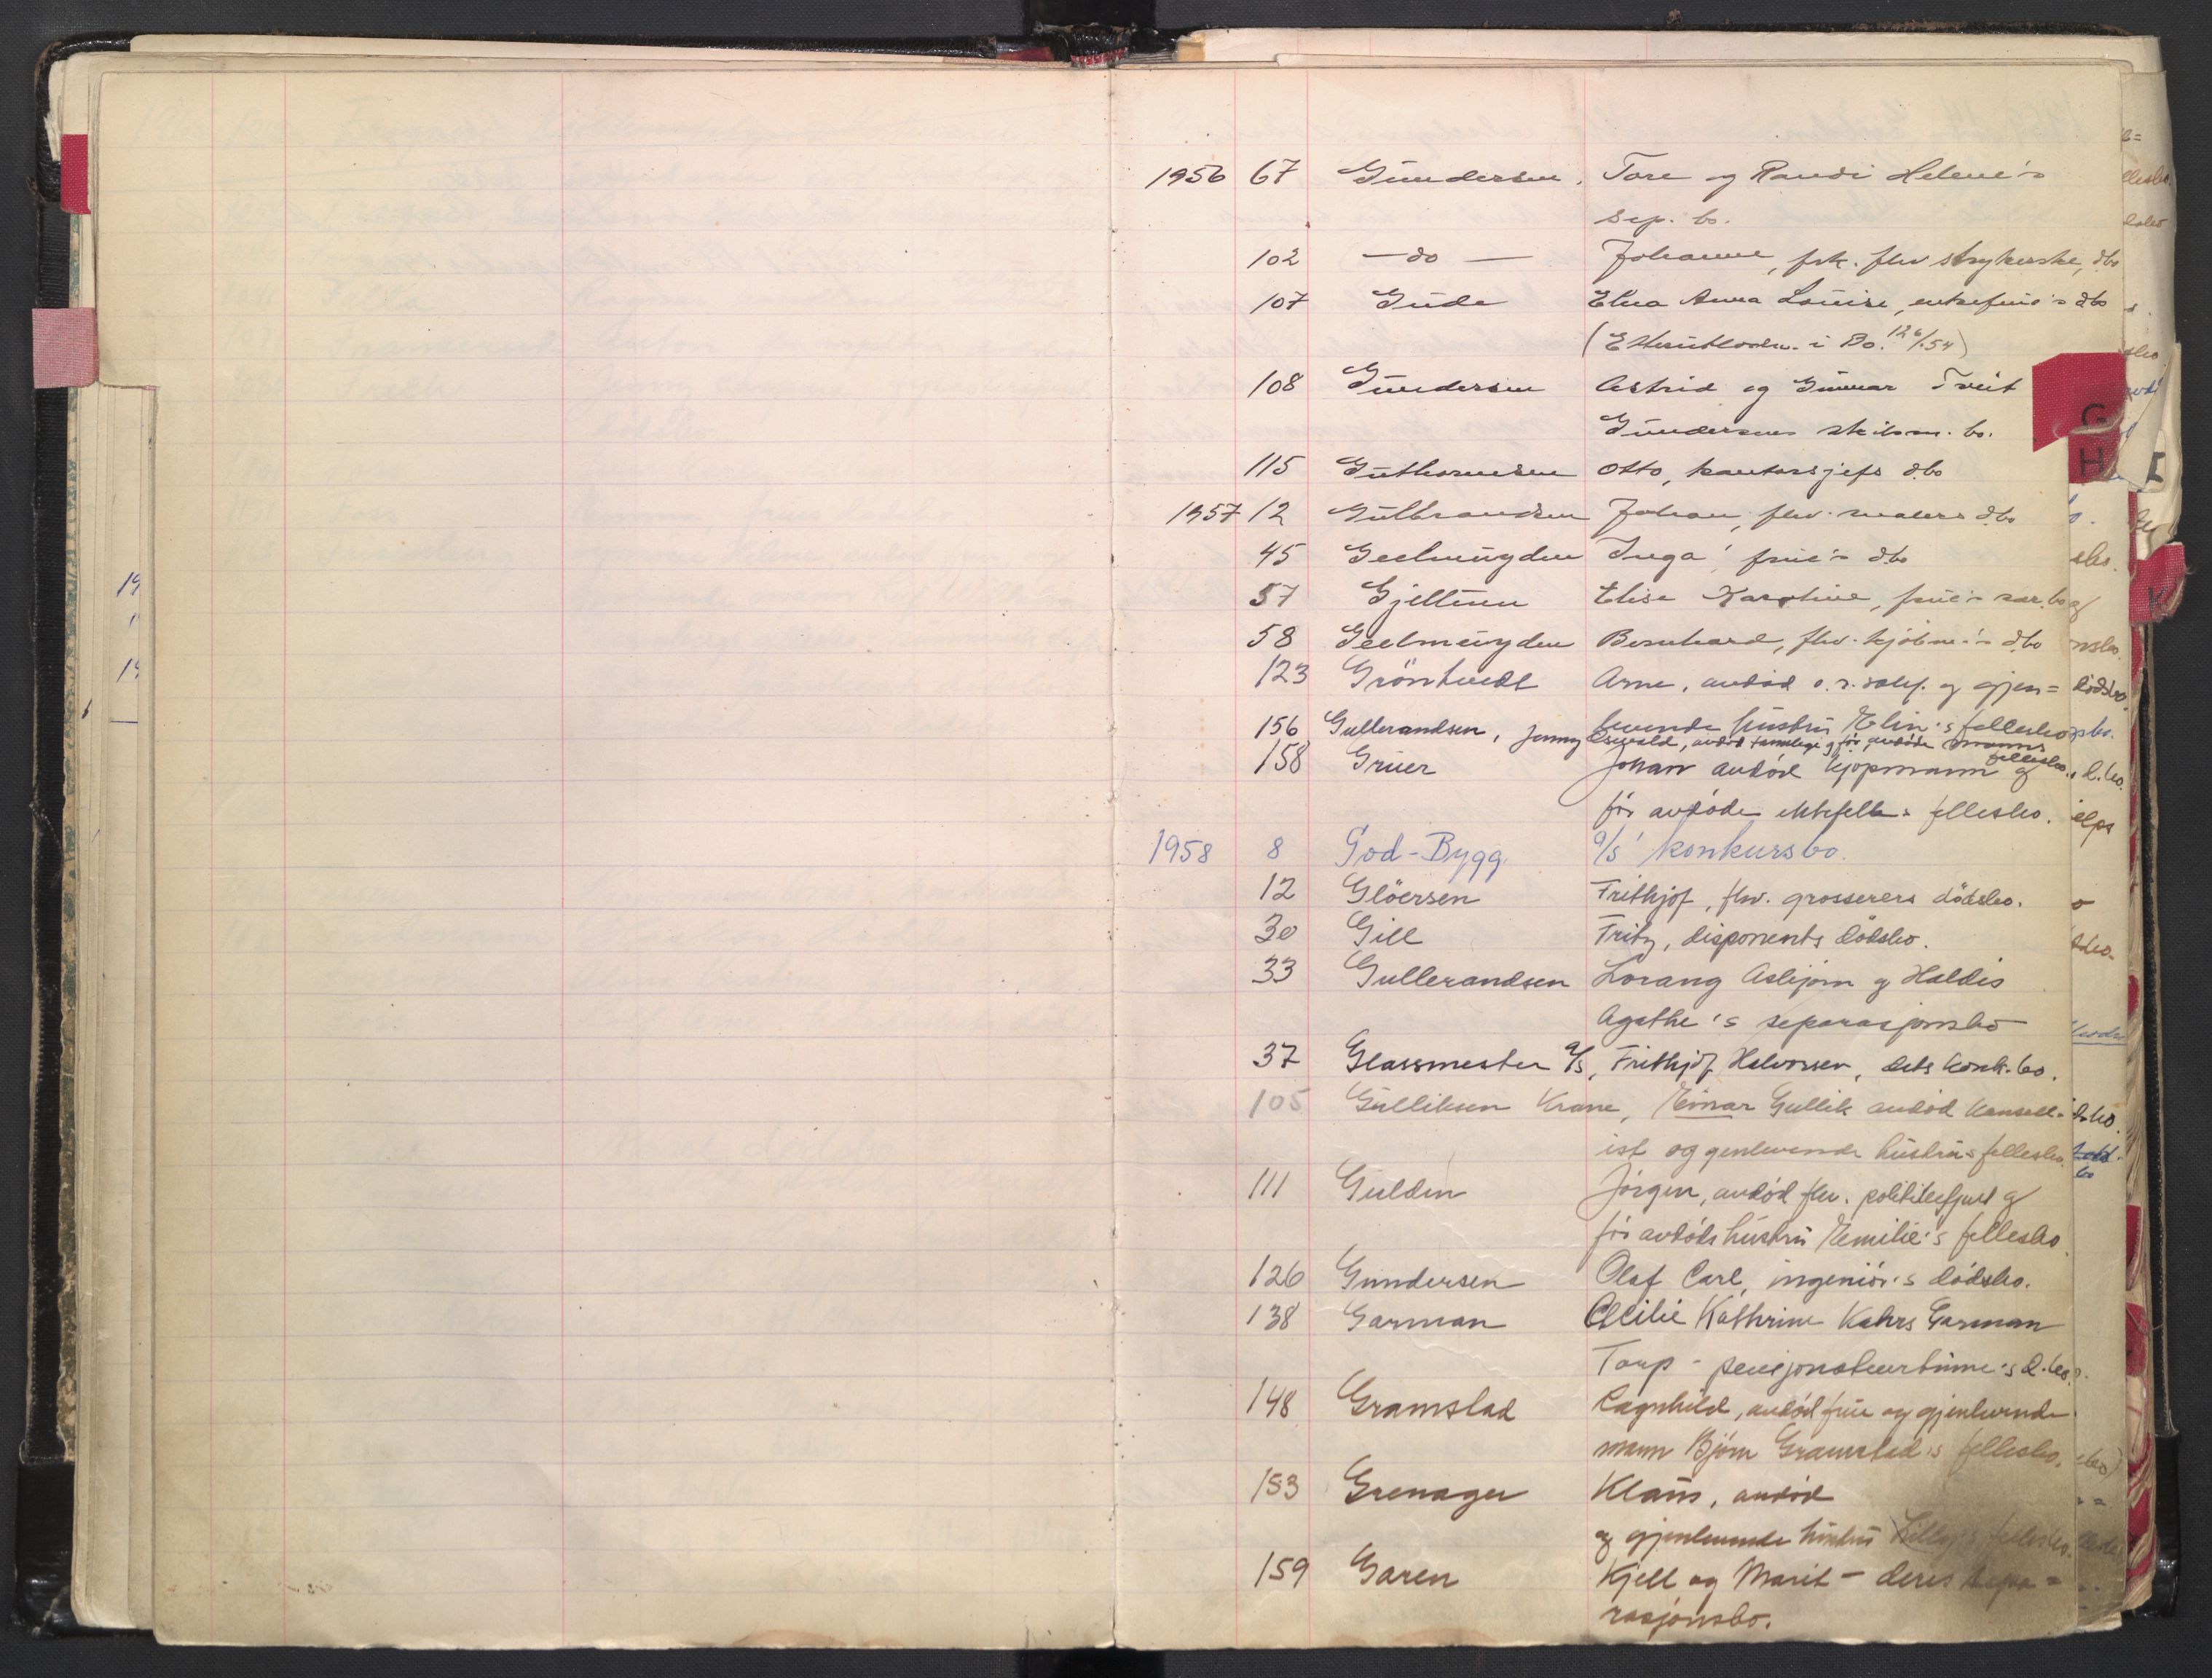 1956 67 Gundersen, Tore og Randi Helene's
sep. bo.
102 — do — Johanne, frk. fhv strykerske, dbo
107 Gude Elna Anna Louise, enkefrue's dbo
(Etterutlodn. i Bo. 126/54)
108 Gundersen Astrid og Gunnar Tveit
Gundersens skilsm. bo.
115 Guthormsen Otto, kontorsjefs dbo
1957 12 Gulbrandsen Johan, fhv. malers dbo
45 Geelmuyden Inga, frue's dbo
57 Gjeltnen Elise Karoline, frue's sær.bo
58 Geelmuyden Bernhard, fhv. kjøbm.'s dbo
123 Grönhvedt Arne, avdöd o.r.sakf. og gjen=
levende hustru Elin's fellesbo
156 Gulbrandsen, Jenny Oswald, avdöd tannlege og för avdöde manns
fellesbo.
158 Gruer Johan avdöd kjöpmann og
för avdöde ektefelles fellesbo.
1958 8 God-Bygg. a/s' konkursbo.
12 Glöersen Frithjof, fhv. grosserers dödsbo.
30 Gill Fritz, disponents dödsbo.
33 Gulbrandsen Lorang Asbjörn og Haldis
Agathe's separasjonsbo
37 Glassmester a/s, Frithjof Halvorsen, dets konk.bo.
105 Gulliksen Krane, Einar Gullik avdöd kansell-
ist og genlevende hustrus fellesbo.
111 Gulden Jörgen, avdöd fhv. politibetjent og
för avdöds hustru Emilie's fellesbo.
126 Gundersen Olaf Carl, ingeniör's dödsbo.
138 Garman Cecilie Kathrine Kahrs Garman
Torp - pensjonatvertinne's d.bo.
148 Gramstad Ragnhild, avdöd frue og gjenlevende
mann Björn Gramstad's fellesbo.
153 Grenager Klaus, avdöd
og gjenlevende hustru Lilly's fellesbo.
159 Garen Kjell og Marit - deres sepa=
rasjonsbo.
G
H
I
K